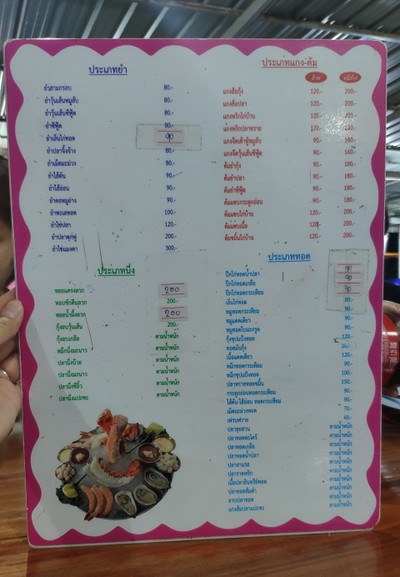 ประเภทยำ
ยำสามกรอบ 80.-
ยำวุ้นเส้นหมูสับ 80.-
ยำวุ้นเส้นซีฟู้ด 80.-
ยำซีฟู้ด 80.-
ยำเอ็นไก่ทอด
ยำปลาจิ้งจ้าง 80.-
ยำเม็ดมะม่วง 80.-
ยำไส้ตัน 90.-
ยำไส้อ่อน 90.-
ยำคอหมูย่าง 90.-
ยำทะเลทอด 100.-
ยำไข่ปลา 120.-
ยำปลาดุกฟู 200.-
ยำไข่แมงดา 300.-
ประเภทแกง-ต้ม
ถ้วย หม้อไฟ
แกงส้มกุ้ง 120.- 200.-
แกงส้มปลา 120.- 200.-
แกงพริกไก่บ้าน 120.- 200.-
แกงพริกปลาทราย 120.- 200.-
แกงจืดเต้าหู้หมูสับ 90.- 180.-
แกงจืดวุ้นเส้นซีฟู้ด 90.- 180.-
ต้มยำกุ้ง 90.- 180.-
ต้มยำปลา 90.- 180.-
ต้มยำซีฟู้ด 90.- 180.-
ต้มแซบกระดูกอ่อน 90.- 180.-
ต้มแซบไก่บ้าน 120.- 200.-
ต้มแซบเนื้อ 120.- 200.-
ต้มขมิ้นไก่บ้าน 120.- 200.-
ประเภทนึ่ง
หอยแครงลวก 200
หอยชักตีนลวก 200.-
หอยน้ำผึ้งลวก 200
กุ้งอบวุ้นเส้น 200.-
กุ้งอบเกลือ ตามน้ำหนัก
หมึกนึ่งมะนาว ตามน้ำหนัก
ปลานึ่งบ๊วย ตามน้ำหนัก
ปลานึ่งมะนาว ตามน้ำหนัก
ปลานึ่งซีอิ๊ว ตามน้ำหนัก
ปลานึ่งแปะซะ ตามน้ำหนัก
ประเภททอด
ปีกไก่ทอดน้ำปลา
ปีกไก่ทอดเกลือ
ปีกไก่ทอดกระเทียม
เอ็นไก่ทอด
หมูทอดกระเทียม 90.-
หมูแดดเดียว 90.-
หมูทอดใบมะกรูด 90.-
กุ้งชุบแป้งทอด 120.-
ทอดมันกุ้ง
เนื้อแดดเดียว 120.-
หมึกทอดกระเทียม 100.-
หมึกชุบแป้งทอด 100.-
ปลาทรายทอดขมิ้น 150.-
กระดูกอ่อนทอดกระเทียม 90.-
ไส้ตัน ไส้อ่อน ทอดกระเทียม 90.-
เม็ดมะม่วงทอด 70.-
เฟรนฟราย 60.-
ปลาลุยสวน ตามน้ำหนัก
ปลาทอดตะไคร้ ตามน้ำหนัก
ปลาทอดเกลือ ตามน้ำหนัก
ปลาทอดน้ำปลา ตามน้ำหนัก
ปลาสามรส ตามน้ำหนัก
ปลาราดพริก ตามน้ำหนัก
ตามน้ำหนัก
ตามน้ำหนัก
ลาบปลาทอด ตามน้ำหนัก
ตามน้ำหนัก